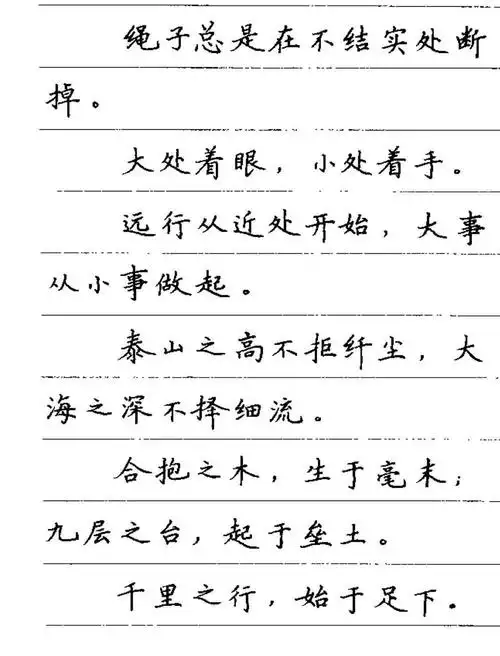 绳子总是在不结实处断
掉。
大处着眼，小处着手。
远行从近处开始，大事
从小事做起。
泰山之高不拒纤尘，大
海之深不择细流。
合抱之木，生于毫末；
九层之台，起于垒土。
千里之行，始于足下。